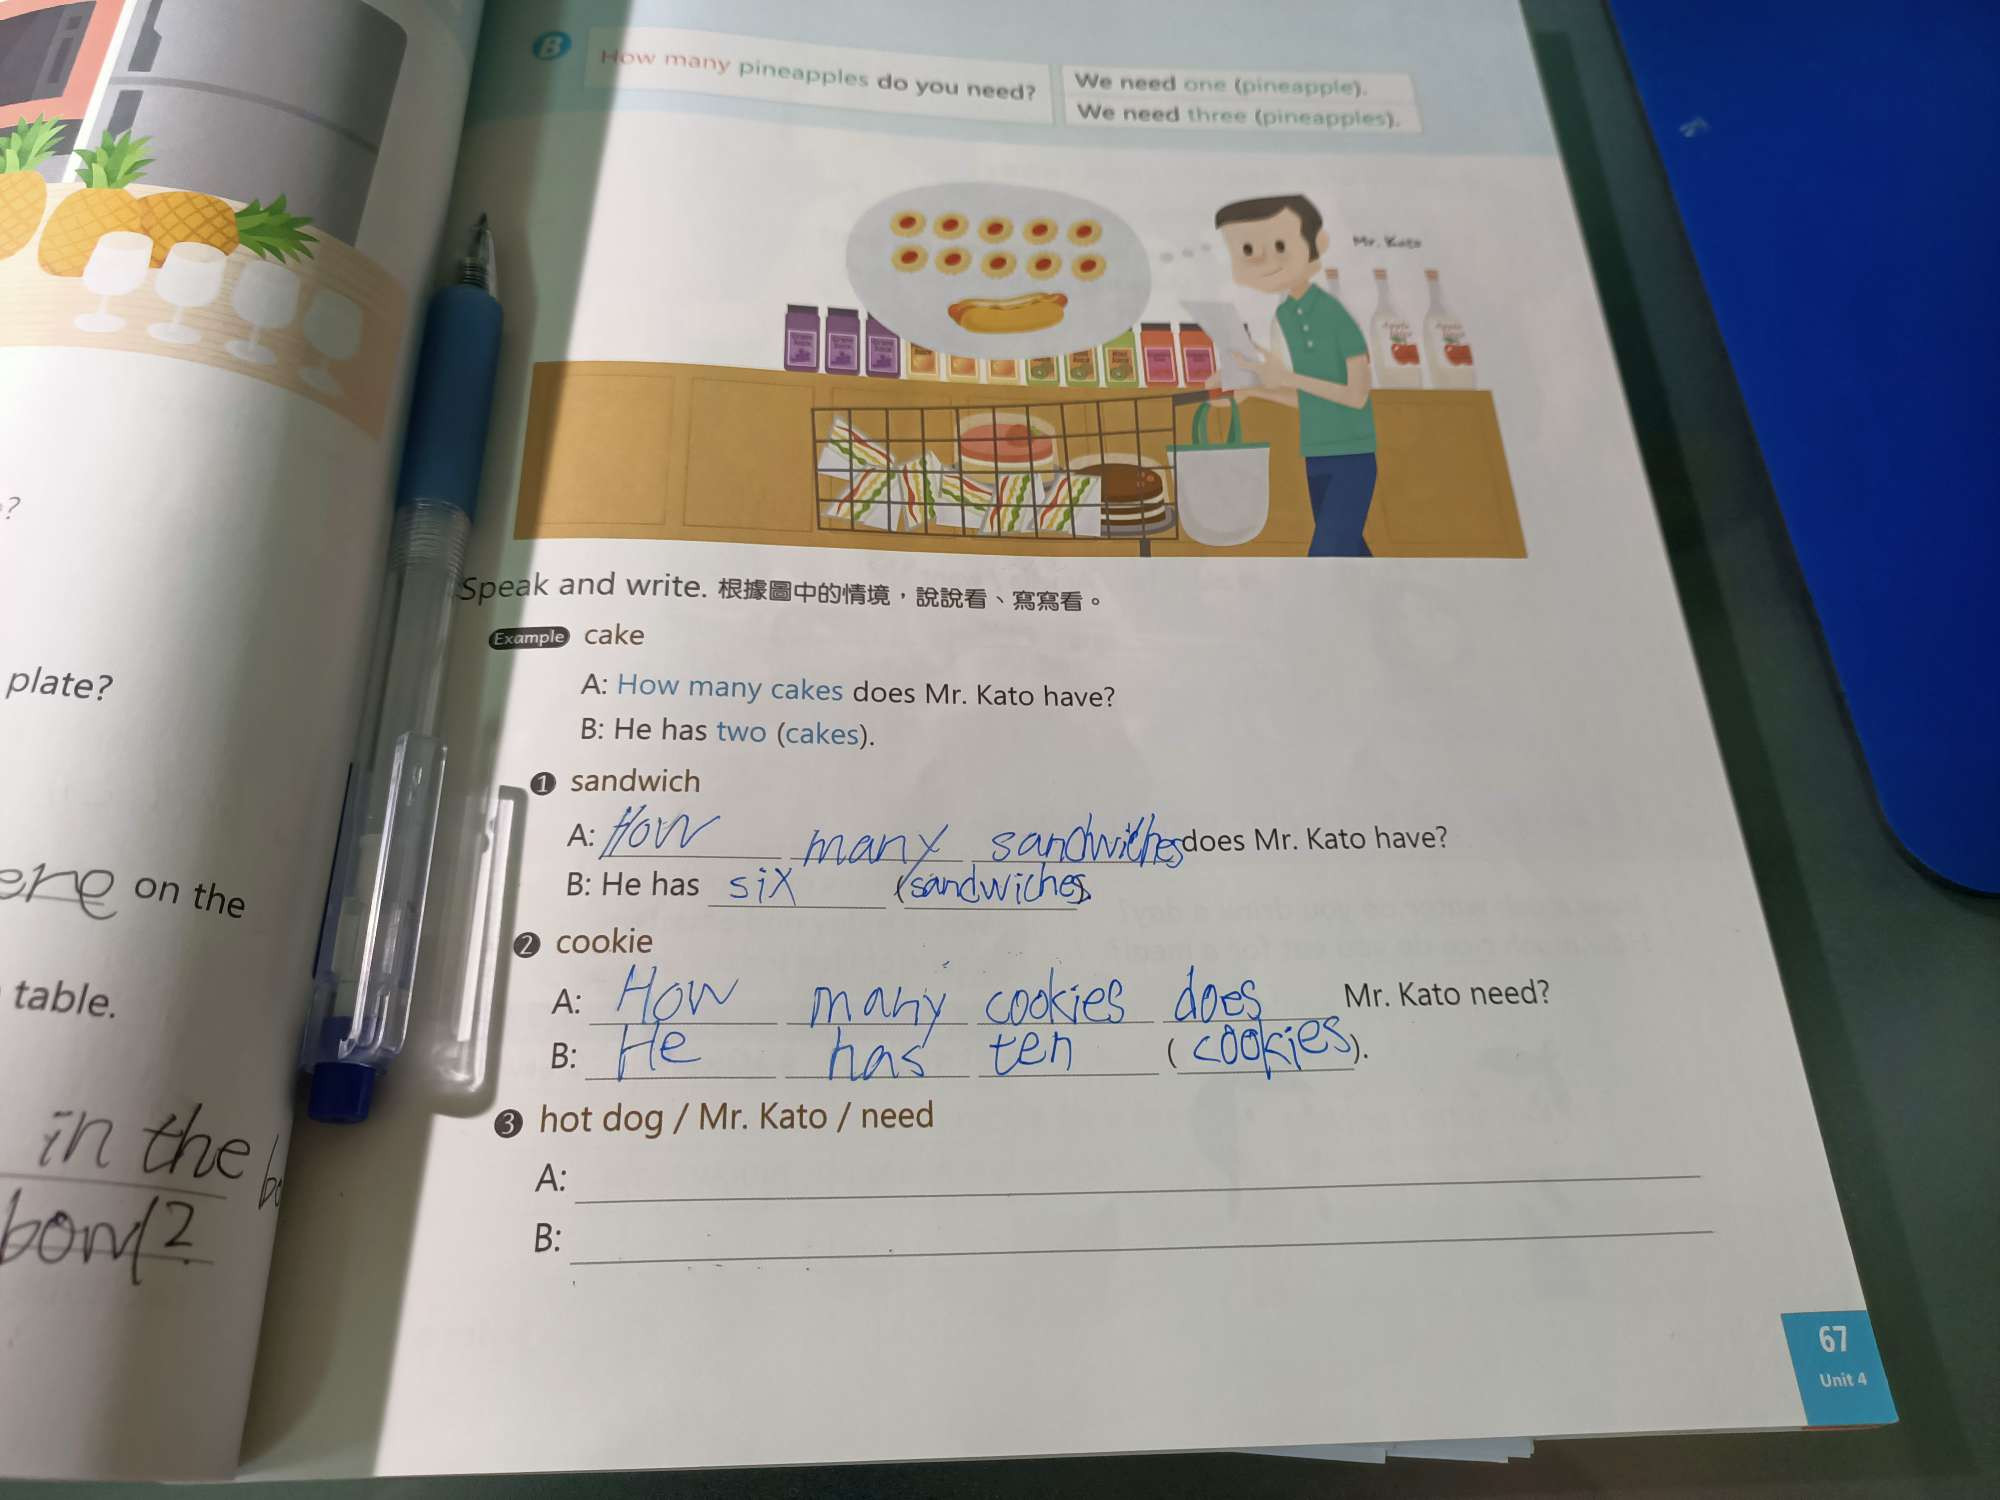 B
How many pineapples do you need?
We need one (pineapple).
We need three (pineapples).
Mr. Kato
?
plate?
ere on the
table.
in the
bowl?
Speak and write. 根據圖中的情境，說說看、寫寫看。
Example cake
A: How many cakes does Mr. Kato have?
B: He has two (cakes).
1 sandwich
A: How many sandwiches does Mr. Kato have?
B: He has six (sandwiches).
2 cookie
A: How many cookies does Mr. Kato need?
B: He has ten (cookies).
3 hot dog / Mr. Kato / need
A:
B:
67
Unit 4